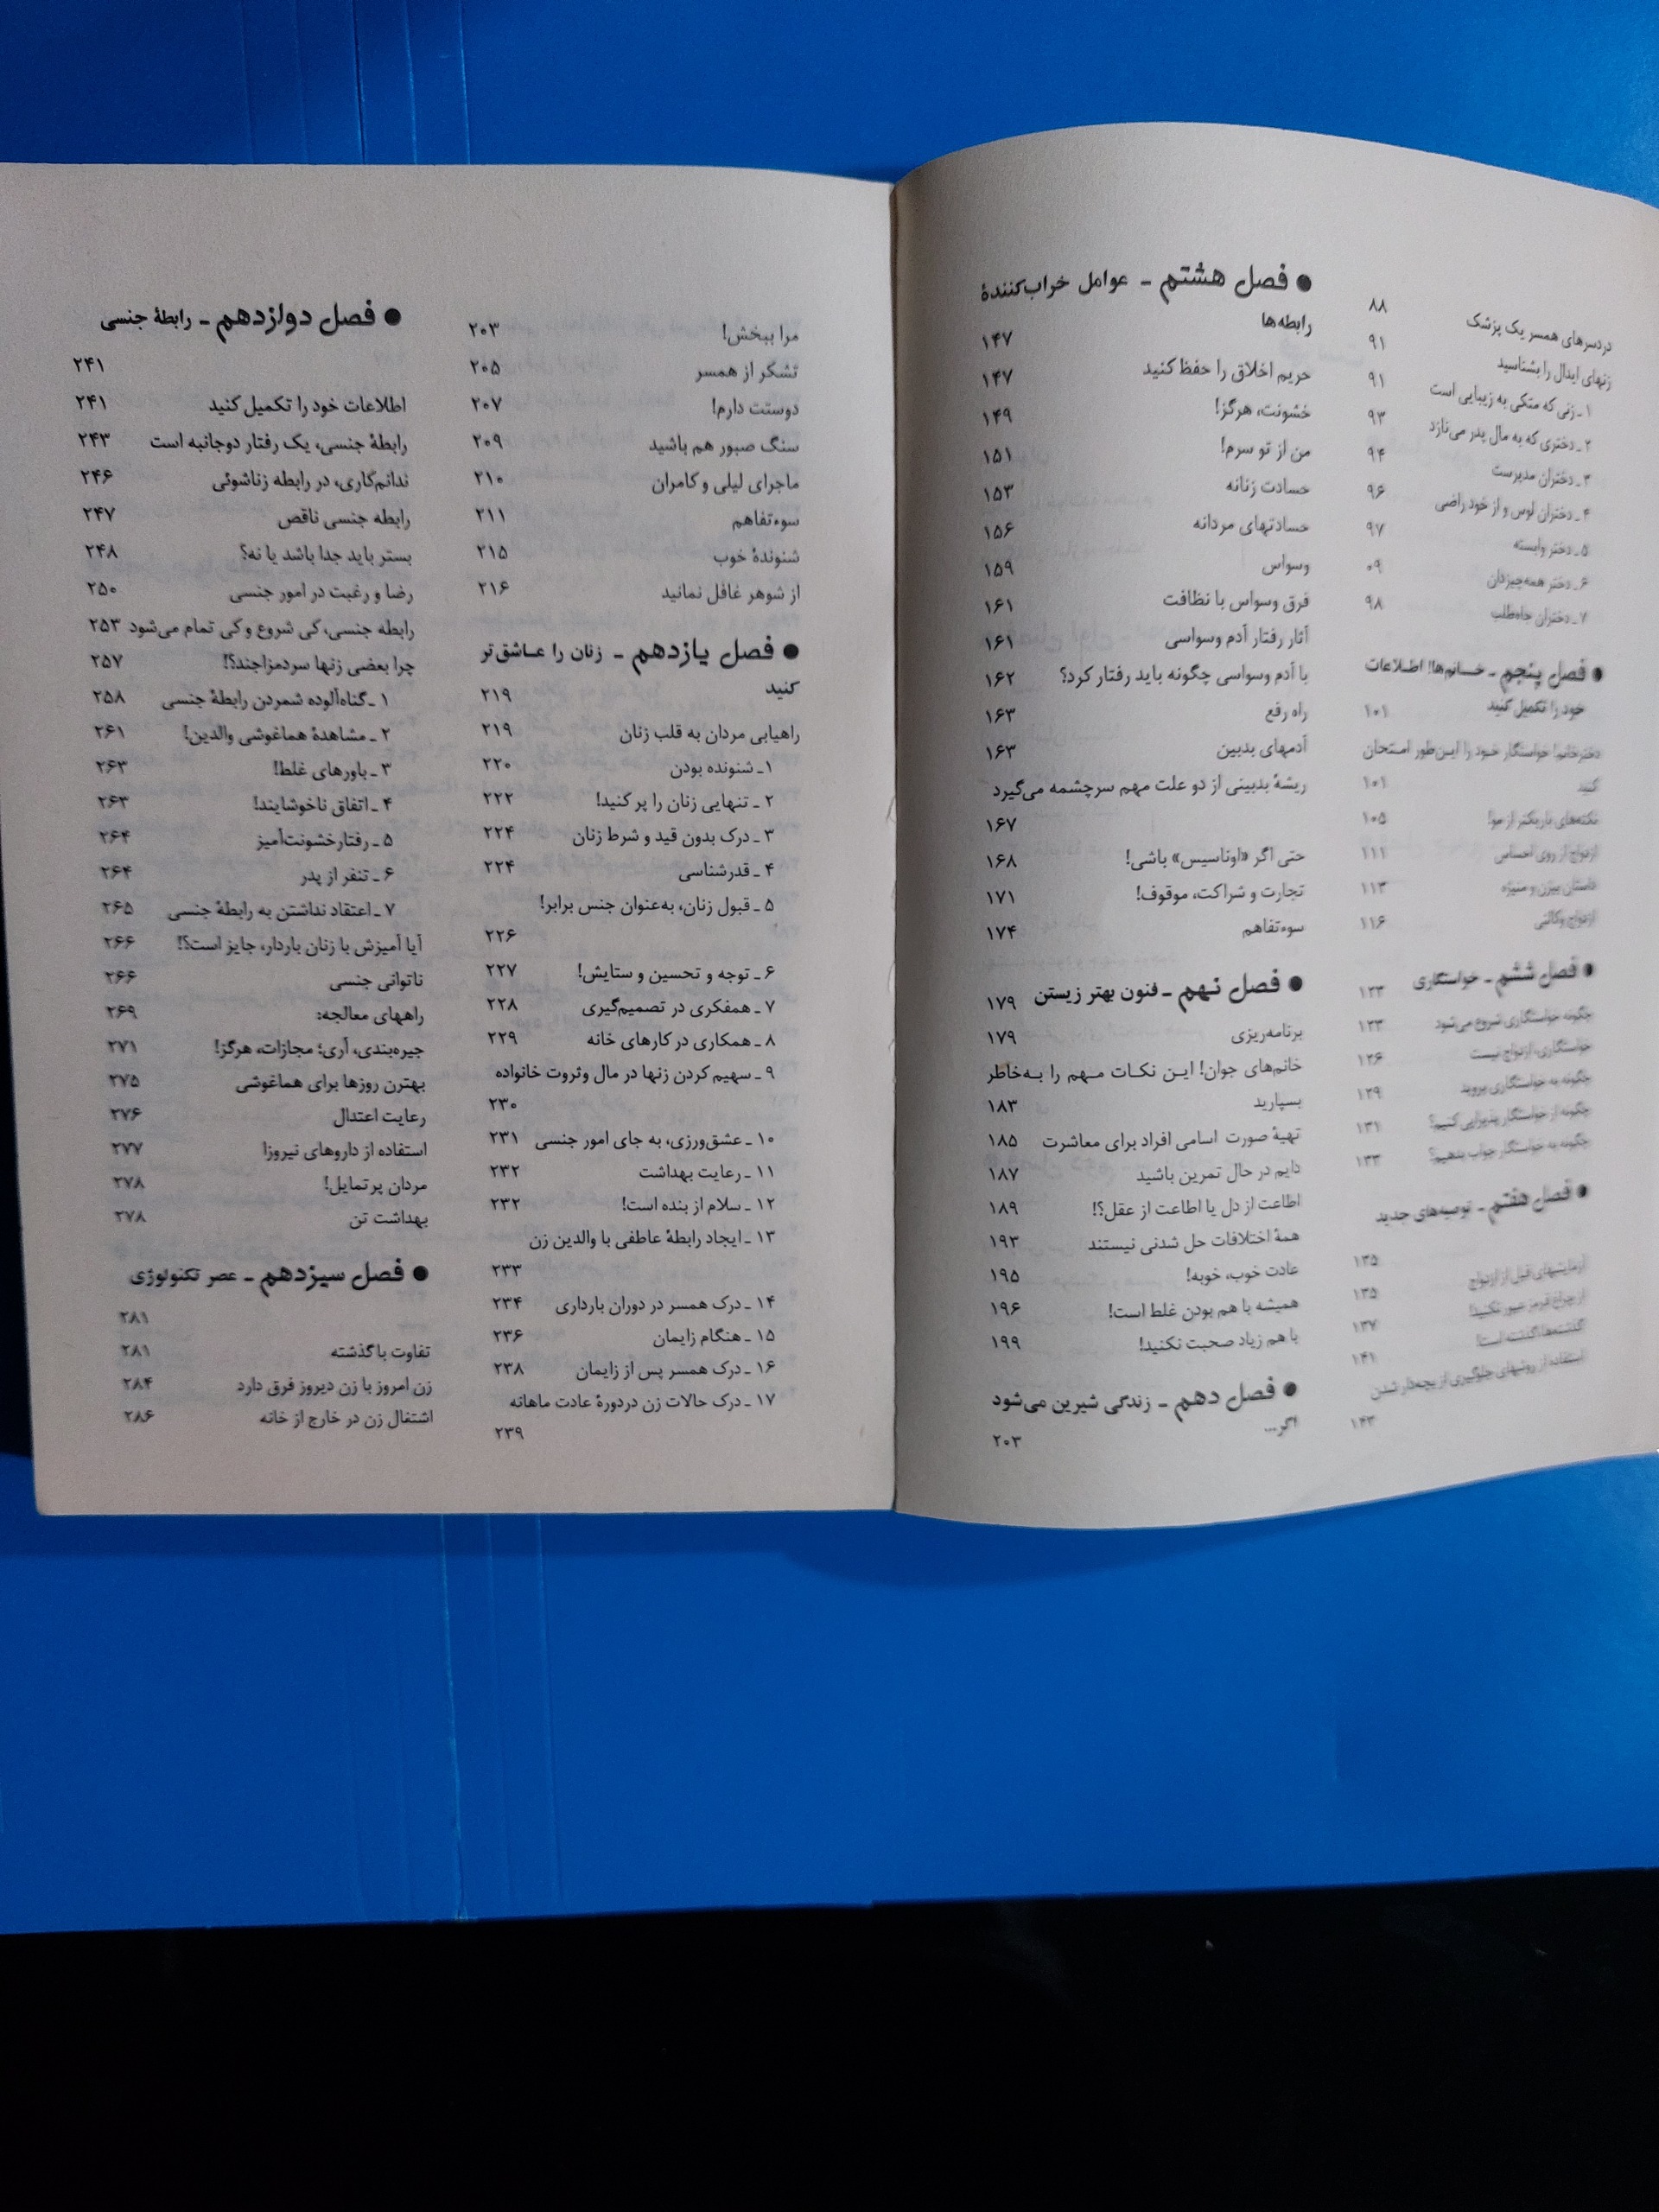 دردسرهای همسر یک پزشک ۸۸
زنهای ایدال را بشناسید ۹۱
۱ ـ زنی که متکی به زیبایی است ۹۱
۲ ـ دختری که به مال پدر می‌نازد ۹۳
۳ ـ دختران مدپرست ۹۴
۴ ـ دختران لوس و از خود راضی ۹۶
۵ ـ دختر وابسته ۹۷
۶ ـ دختر همه‌چیزدان ۰۹
۷ ـ دختران جاه‌طلب ۹۸
● فصل پنجم ـ خـانم‌ها! اطـلاعات
خود را تکمیل کنید ۱۰۱
دختر خانم! خواستگار خـود را ایـن‌طور امـتحان
کنید ۱۰۱
نکته‌های باریکتر از مو! ۱۰۵
ازدواج از روی احساس ۱۱۱
داستان بیژن و منیژه ۱۱۳
ازدواج وکالتی ۱۱۶
● فصل ششم ـ خواستگاری ۱۲۳
چگونه خواستگاری شروع می‌شود ۱۲۳
خواستگاری، ازدواج نیست ۱۲۶
چگونه به خواستگاری بروید ۱۲۹
چگونه از خواستگار پذیرایی کنیم؟ ۱۳۱
چگونه به خواستگار جواب بدهیم؟ ۱۳۳
● فصل هفتم ـ توصیه‌های جدید
۱۳۵
آزمایشهای قبل از ازدواج ۱۳۵
از چراغ قرمز عبور نکنید! ۱۳۷
گذشته‌ها گذشته است! ۱۴۱
استفاده از روشهای جلوگیری از بچه‌دار شدن
۱۴۳
● فصل هشتم ـ عوامل خراب‌کنندهٔ
رابطه‌ها ۱۴۷
حریم اخلاق را حفظ کنید ۱۴۷
خشونت، هرگز! ۱۴۹
من از تو سرم! ۱۵۱
حسادت زنانه ۱۵۳
حسادتهای مردانه ۱۵۶
وسواس ۱۵۹
فرق وسواس با نظافت ۱۶۱
آثار رفتار آدم وسواسی ۱۶۱
با آدم وسواسی چگونه باید رفتار کرد؟ ۱۶۲
راه رفع ۱۶۳
آدمهای بدبین ۱۶۳
ریشهٔ بدبینی از دو علت مهم سرچشمه می‌گیرد
۱۶۷
حتی اگر «اوناسیس» باشی! ۱۶۸
تجارت و شراکت، موقوف! ۱۷۱
سوءتفاهم ۱۷۴
● فصل نهم ـ فنون بهتر زیستن ۱۷۹
برنامه‌ریزی ۱۷۹
خانم‌های جوان! ایـن نکـات مـهم را بـه‌خاطر
بسپارید ۱۸۳
تهیهٔ صورت اسامی افراد برای معاشرت ۱۸۵
دایم در حال تمرین باشید ۱۸۷
اطاعت از دل یا اطاعت از عقل؟! ۱۸۹
همهٔ اختلافات حل شدنی نیستند ۱۹۳
عادت خوب، خوبه! ۱۹۵
همیشه با هم بودن غلط است! ۱۹۶
با هم زیاد صحبت نکنید! ۱۹۹
● فصل دهم ـ زندگی شیرین می‌شود
اگر... ۲۰۳
مرا ببخش! ۲۰۳
تشگر از همسر ۲۰۵
دوستت دارم! ۲۰۷
سنگ صبور هم باشید ۲۰۹
ماجرای لیلی و کامران ۲۱۰
سوءتفاهم ۲۱۱
شنوندهٔ خوب ۲۱۵
از شوهر غافل نمانید ۲۱۶
● فصل یازدهم ـ زنان را عـاشق‌تر
کنید ۲۱۹
راهیابی مردان به قلب زنان ۲۱۹
۱ـ شنونده بودن ۲۲۰
۲ ـ تنهایی زنان را پر کنید! ۲۲۲
۳ ـ درک بدون قید و شرط زنان ۲۲۴
۴ ـ قدرشناسی ۲۲۴
۵ ـ قبول زنان، به‌عنوان جنس برابر!
۲۲۶
۶ ـ توجه و تحسین و ستایش! ۲۲۷
۷ ـ همفکری در تصمیم‌گیری ۲۲۸
۸ ـ همکاری در کارهای خانه ۲۲۹
۹ ـ سهیم کردن زنها در مال وثروت خانواده
۲۳۰
۱۰ ـ عشق‌ورزی، به جای امور جنسی ۲۳۱
۱۱ ـ رعایت بهداشت ۲۳۲
۱۲ ـ سلام از بنده است! ۲۳۲
۱۳ ـ ایجاد رابطهٔ عاطفی با والدین زن
۲۳۳
۱۴ ـ درک همسر در دوران بارداری ۲۳۴
۱۵ ـ هنگام زایمان ۲۳۶
۱۶ ـ درک همسر پس از زایمان ۲۳۸
۱۷ ـ درک حالات زن دردورهٔ عادت ماهانه
۲۳۹
● فصل دوازدهم ـ رابطهٔ جنسی
۲۴۱
اطلاعات خود را تکمیل کنید ۲۴۱
رابطهٔ جنسی، یک رفتار دوجانبه است ۲۴۳
ندانم‌کاری، در رابطه زناشوئی ۲۴۶
رابطه جنسی ناقص ۲۴۷
بستر باید جدا باشد یا نه؟ ۲۴۸
رضا و رغبت در امور جنسی ۲۵۰
رابطه جنسی، کی شروع و کی تمام می‌شود ۲۵۳
چرا بعضی زنها سردمزاجند؟! ۲۵۷
۱ ـ گناه‌آلوده شمردن رابطهٔ جنسی ۲۵۸
۲ ـ مشاهدهٔ هماغوشی والدین! ۲۶۱
۳ ـ باورهای غلط! ۲۶۳
۴ ـ اتفاق ناخوشایند! ۲۶۳
۵ ـ رفتار خشونت‌آمیز ۲۶۴
۶ ـ تنفر از پدر ۲۶۴
۷ ـ اعتقاد نداشتن به رابطهٔ جنسی ۲۶۵
آیا آمیزش با زنان باردار، جایز است؟! ۲۶۶
ناتوانی جنسی ۲۶۶
راههای معالجه: ۲۶۹
جیره‌بندی، آری؛ مجازات، هرگز! ۲۷۱
بهترن روزها برای هماغوشی ۲۷۵
رعایت اعتدال ۲۷۶
استفاده از داروهای نیروزا ۲۷۷
مردان پر تمایل! ۲۷۸
بهداشت تن ۲۷۸
● فصل سیزدهم ـ عصر تکنولوژی
۲۸۱
تفاوت با گذشته ۲۸۱
زن امروز با زن دیروز فرق دارد ۲۸۴
اشتغال زن در خارج از خانه ۲۸۶